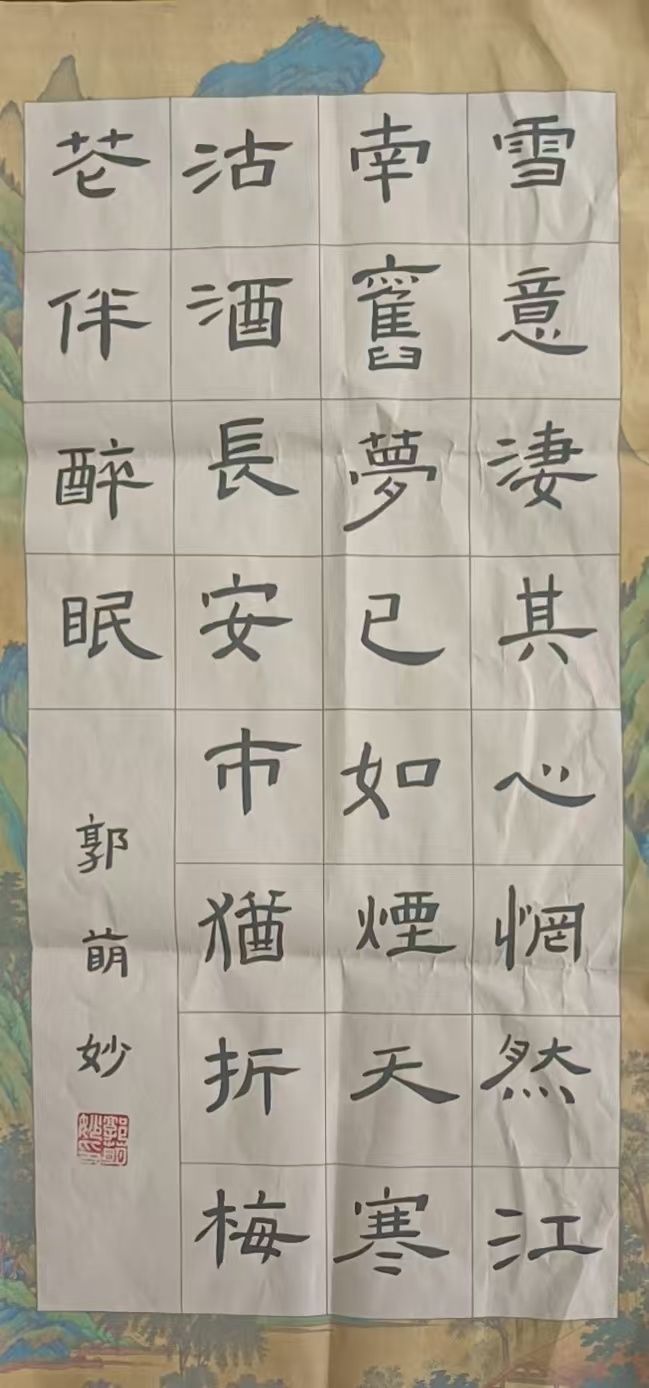 雪意淒其心惘然江
南舊夢已如煙天寒
沽酒長安市猶折梅
花伴醉眠
郭萌妙